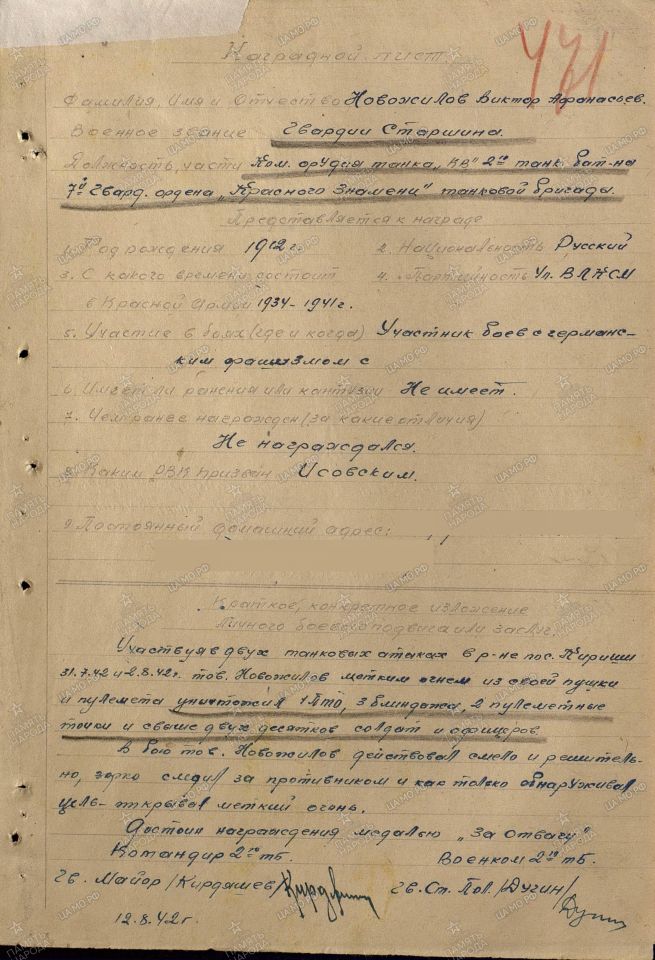 471
Наградной лист.
Фамилия, Имя и Отчество Новожилов Виктор Афанасьев.
Военное звание Гвардии Старшина.
Должность, часть Ком. орудия танка "КВ" 2го танк. бат-на
7й Гвард. ордена "Красного Знамени" танковой бригады.
Представляется к награде
1. Год рождения 1912 г. 2. Национальность Русский
3. С какого времени состоит 4. Партийность Чл. ВЛКСМ
в Красной Армии 1934-1941 г.
5. Участие в боях (где и когда) Участник боев с германс-
ким фашизмом с
6. Имеет ли ранения или контузии Не имеет.
7. Чем ранее награжден (за какие отличия)
Не награждался.
8. Каким РВК призван Исовским.
9. Постоянный домашний адрес:
Краткое, конкретное изложение
личного боевого подвига или заслуг.
Участвуя в двух танковых атаках в р-не пос. Кириши
31.7.42 и 2.8.42 г. тов. Новожилов метким огнем из своей пушки
и пулемета уничтожил 1 ПТО, 3 блиндажа, 2 пулеметные
точки и свыше двух десятков солдат и офицеров.
В бою тов. Новожилов действовал смело и решитель-
но, зорко следил за противником и как только обнаруживал
цель- открывал меткий огонь.
Достоин награждения медалью "За Отвагу"
Командир 2го тб. Военком 2го тб.
Гв. Майор /Кирдяшев/ Гв. Ст. Пол. /Дугин/
12.8.42 г.
ПАМЯТЬ НАРОДА
ЦАМО.РФ